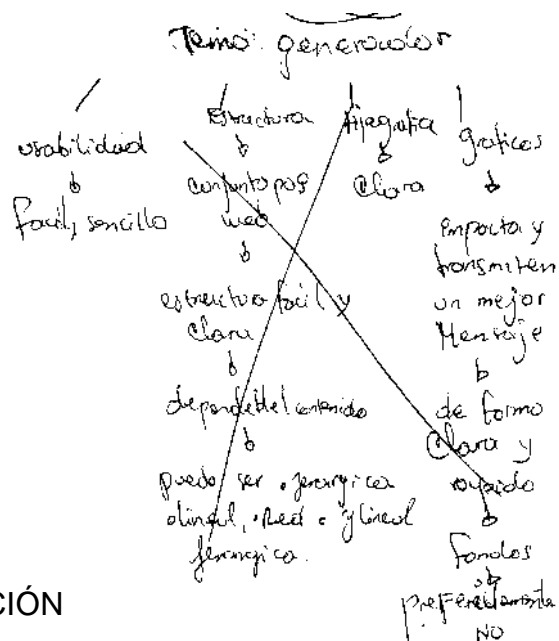 Tema generador
usabilidad
facil, sencillo
Estructura
conjunto pag
web
estructura facil y
Clara
depende del contenido
puede ser
lineal
Jerarquica
tipografia
Clara
graficos
Impacta y
transmiten
un mejor
Mensaje
de forma
Clara y
rapida
fondos
NO
CIÓN